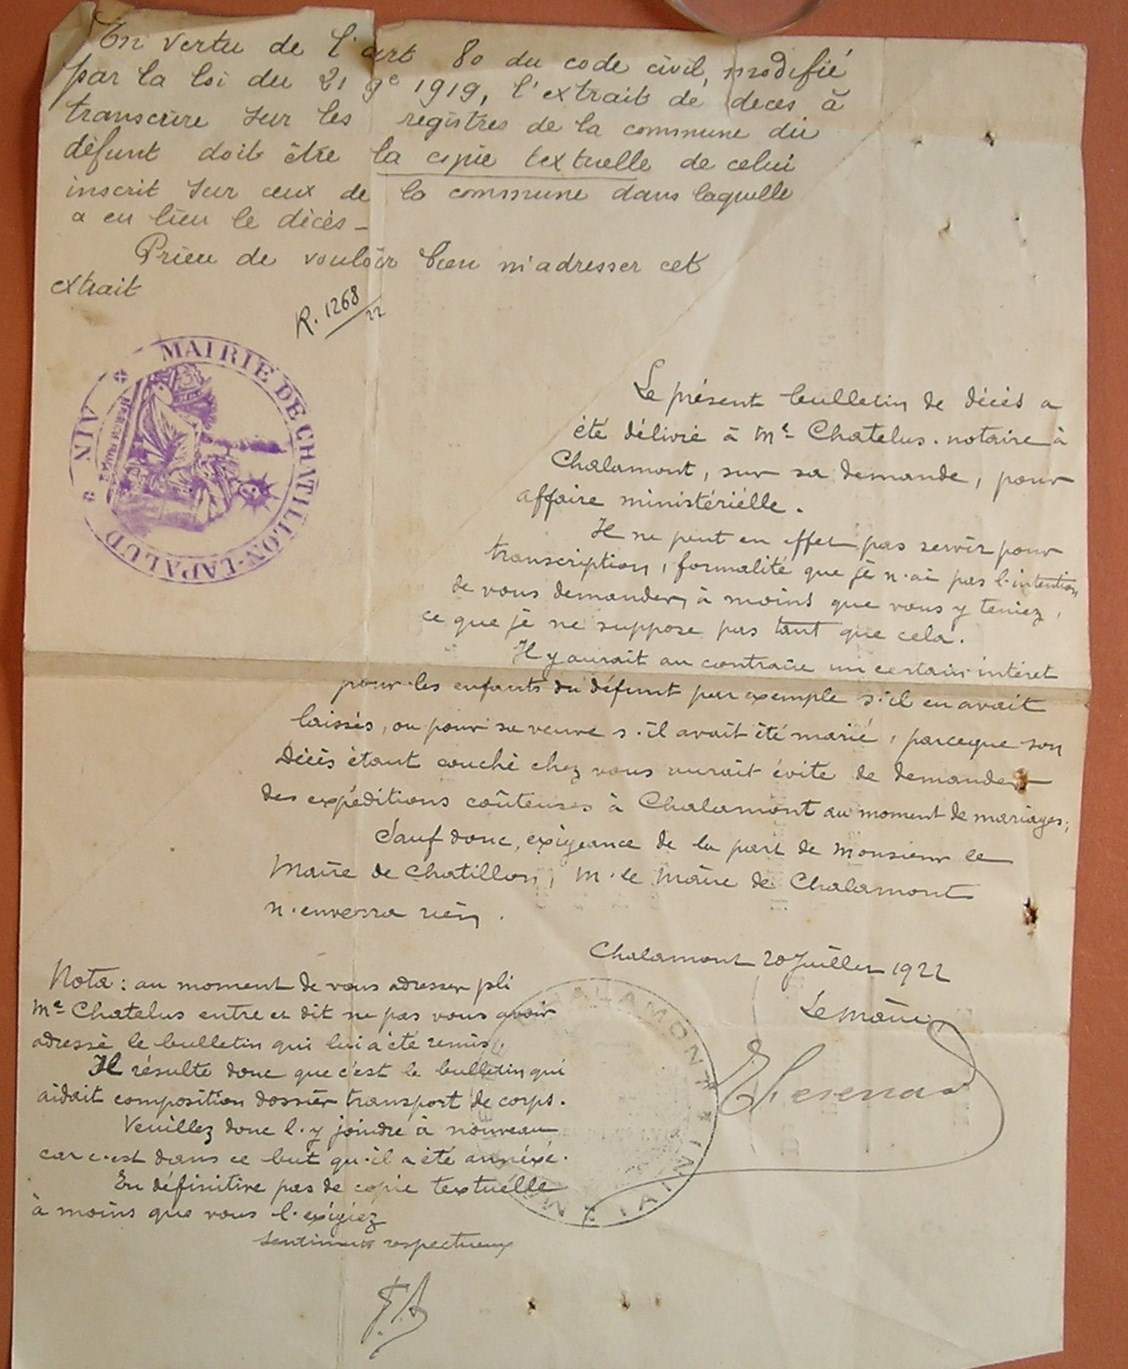 En vertu de l'art 80 du code civil, modifié
par la loi du 21 9e 1919, l'extrait de deces à
transcrire sur les registres de la commune du
défunt doit être la copie textuelle de celui
inscrit sur ceux de la commune dans laquelle
a eu lieu le décès –
Prière de vouloir bien m'adresser cet
extrait
R. 1268/22
MAIRIE DE CHATILLON-LAPALUD
AIN
Le présent bulletin de décès a
été délivré à Me Chatelus. notaire à
Chalamont, sur sa demande, pour
affaire ministérielle.
Il ne peut en effet pas servir pour
transcription, formalité que je n'ai pas l'intention
de vous demander, à moins que vous y teniez,
ce que je ne suppose pas tant que cela.
Il y aurait au contraire un certain intéret
pour les enfants du défunt par exemple s'il en avait
laissés, ou pour sa veuve s'il avait été marié, parceque son
Décès étant couché chez vous aurait évité de demander
des expéditions coûteuses à Chalamont au moment de mariages;
Sauf donc, exigeance de la part de Monsieur le
Maire de Chatillon, M. le Maire de Chalamont
n'enverra rien.
Chalamont 20 Juillet 1922
Le Maire
CHALAMONT
AIN
Nota: au moment de vous adresser pli
Me Chatelus entre et dit ne pas vous avoir
adressé le bulletin qui lui a été remis.
Il résulte donc que c'est le bulletin qui
aidait composition dossier transport de corps.
Veuillez donc l'y joindre à nouveau
car c'est dans ce but qu'il a été annéxé.
En définitive pas de copie textuelle
à moins que vous l'exigiez
Sentiments respectueux